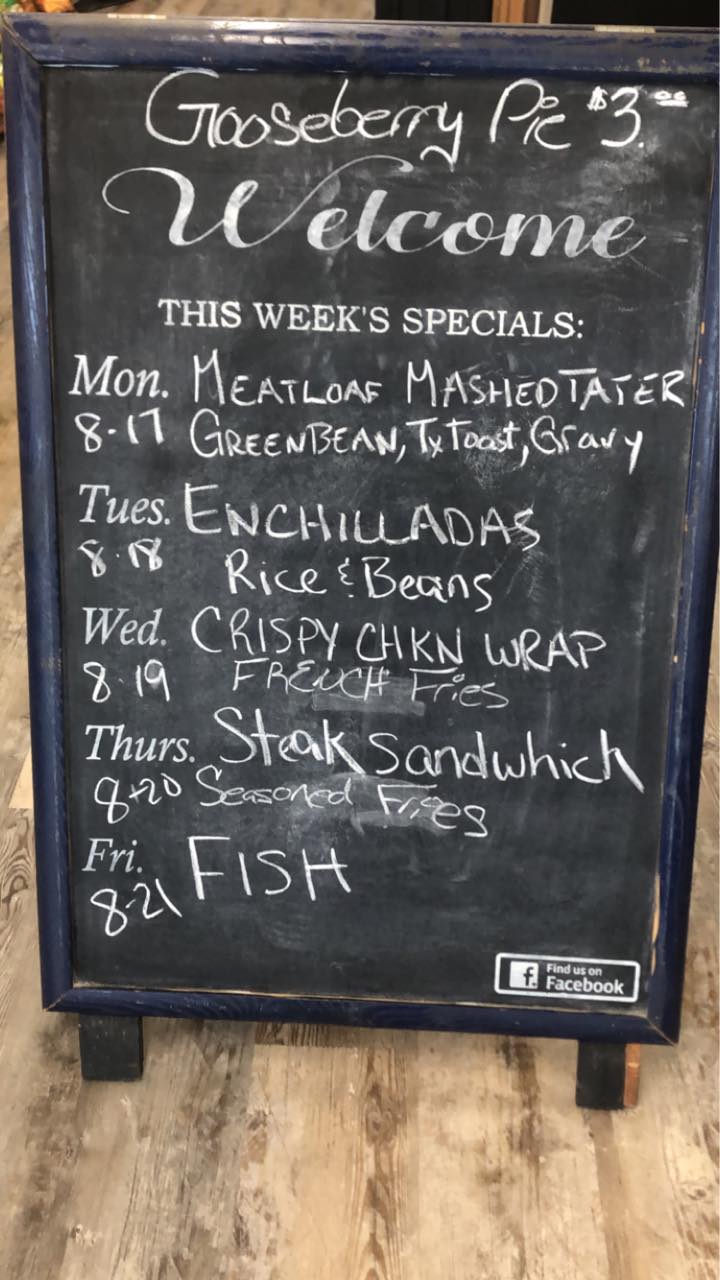 Gooseberry Pie $3.00
Welcome
THIS WEEK'S SPECIALS:
Mon. MEATLOAF MASHED TATER
8-17 GREENBEAN, Tx Toast, Gravy
Tues. ENCHILLADAS
8-18 Rice & Beans
Wed. CRISPY CHKN WRAP
8-19 FRENCH Fries
Thurs. Steak Sandwhich
8-20 Seasoned Fries
Fri. FISH
8-21
f Find us on
Facebook